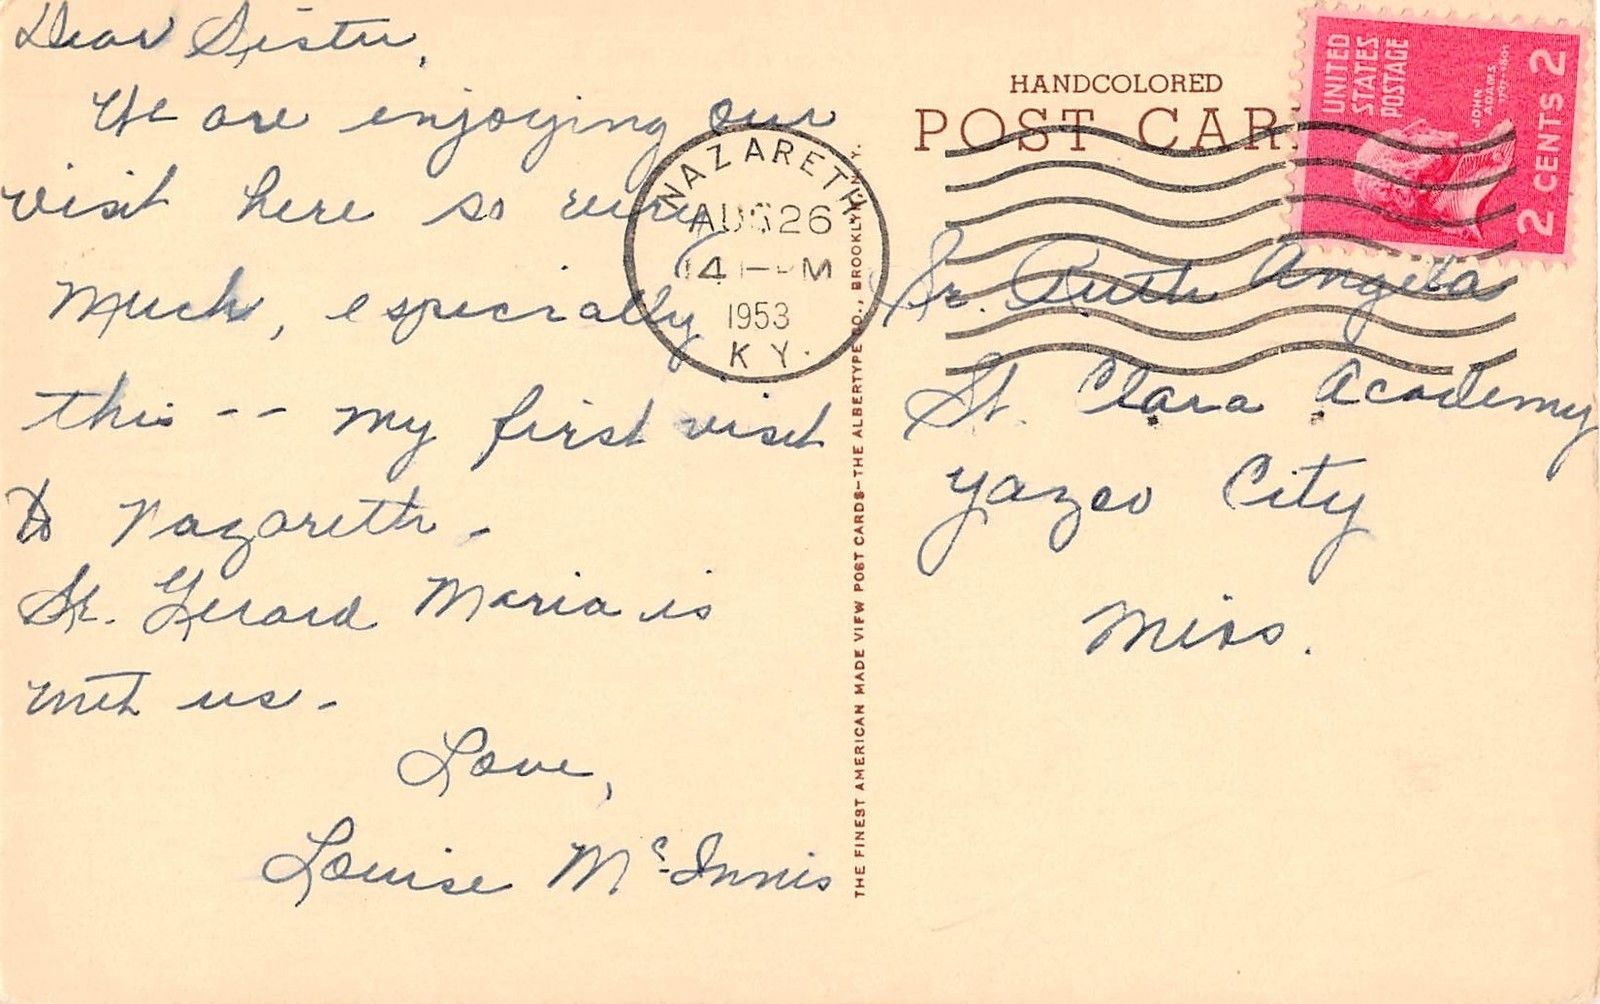 Dear Sister,
We are enjoying our
visit here so very
much, especially
this -- my first visit
to Nazareth -
Sr. Gerard Maria is
with us -
Love,
Louise Mc Innis
NAZARETH
AUG 26
PM
1953
KY.
THE FINEST AMERICAN MADE VIEW POST CARDS—THE ALBERTYPE CO., BROOKLYN, N.Y.
HANDCOLORED
POST CAR
UNITED
STATES
POSTAGE
JOHN
ADAMS
1797-1801
2 CENTS 2
Sr. Ruth Angela
St. Clara Academy
Yazoo City
Miss.